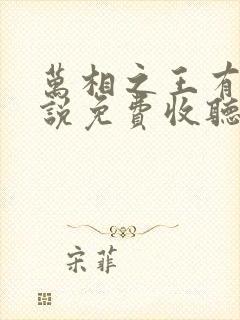 萬相之王有
說免費收聽
宋菲